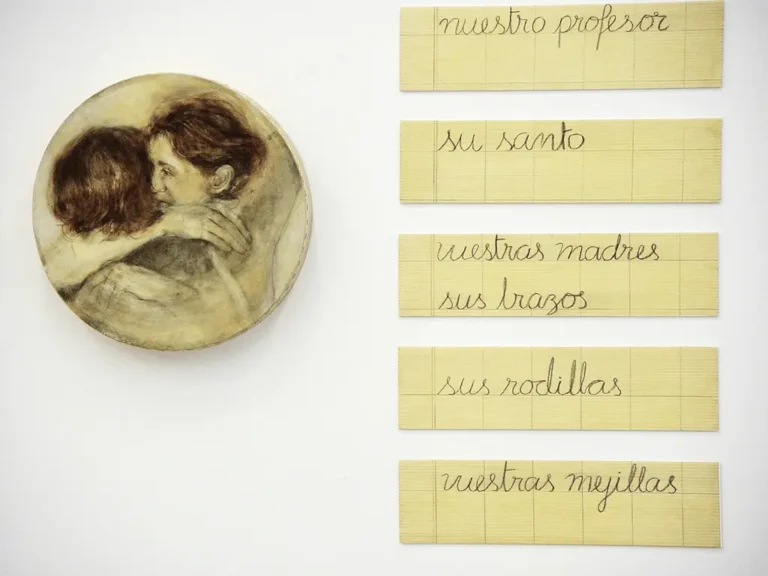 nuestro profesor
su santo
vuestras madres
sus brazos
sus rodillas
vuestras mejillas